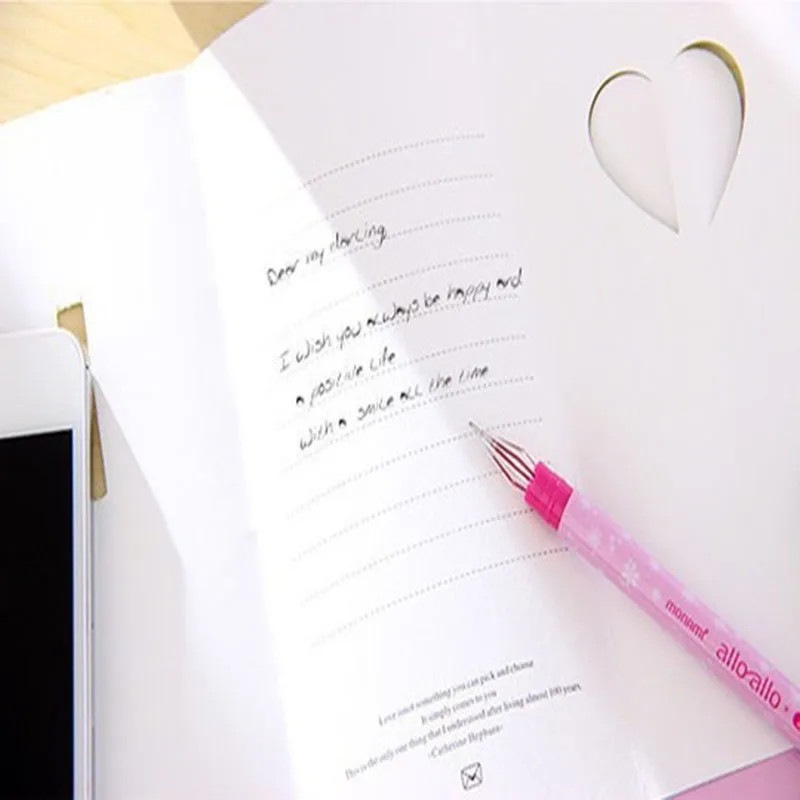 Dear my darling
I wish you always be happy and
a positive life
with a smile all the time
Love isnot something you can pick and choose
It simply comes to you
This is the only one thing that I understood after living almost 100 years
-Catherine Hepburn-
monami allo·allo